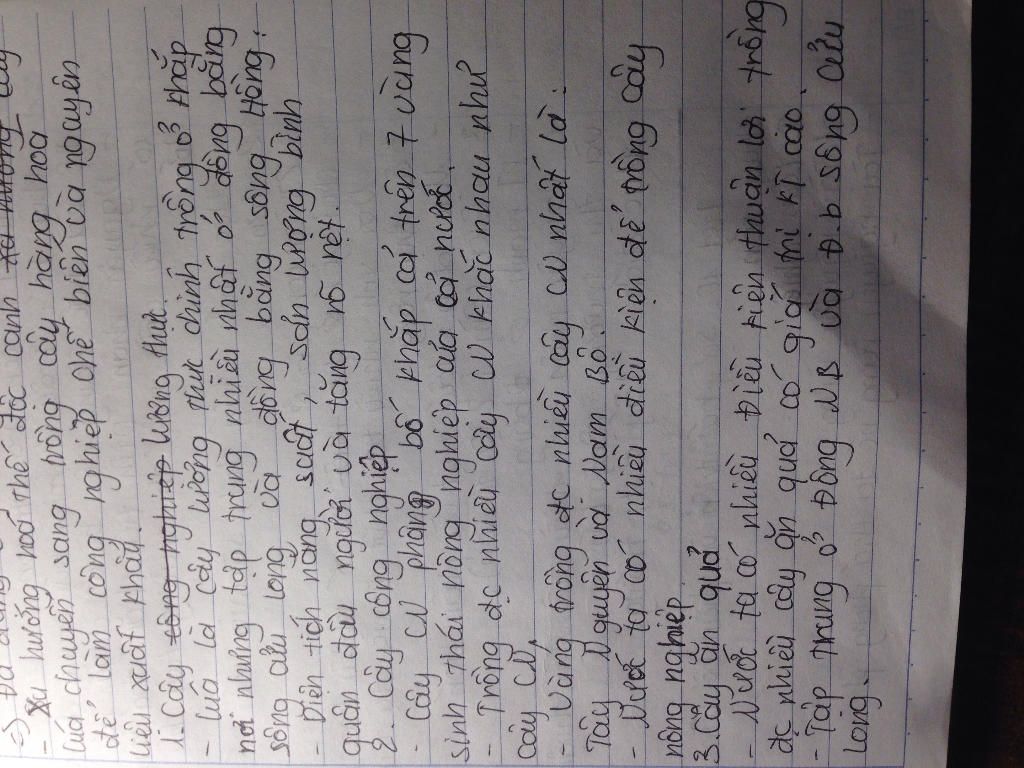 - Xu hướng xoá thế độc canh cây
lúa chuyển sang trồng cây hàng hoá
để làm công nghiệp chế biến và nguyên
liệu xuất khẩu.
1. Cây công nghiệp lương thực
- Lúa là cây lương thực chính trồng ở khắp
nơi nhưng tập trung nhiều nhất ở đồng bằng
sông cửu long và đồng bằng sông Hồng.
- Diện tích năng suất, sản lượng bình
quân đầu người và tăng rõ rệt.
2. Cây công nghiệp
- Cây CN phâng bố khắp cá trên 7 vùng
sinh thái nông nghiệp của cả nước.
- Trồng đc nhiều cây CN khác nhau như
cây CN,
- Vùng trồng đc nhiều cây CN nhất là:
Tây Nguyên và Nam Bộ.
- Nước ta có nhiều điều kiện để trồng cây
nông nghiệp
3. Cây ăn quả
- Nước ta có nhiều điều kiện thuận lợi trồng
đc nhiều cây ăn quả có giá trị KT cao.
- Tập trung ở Đông NB và Đ.b sông cửu
long.